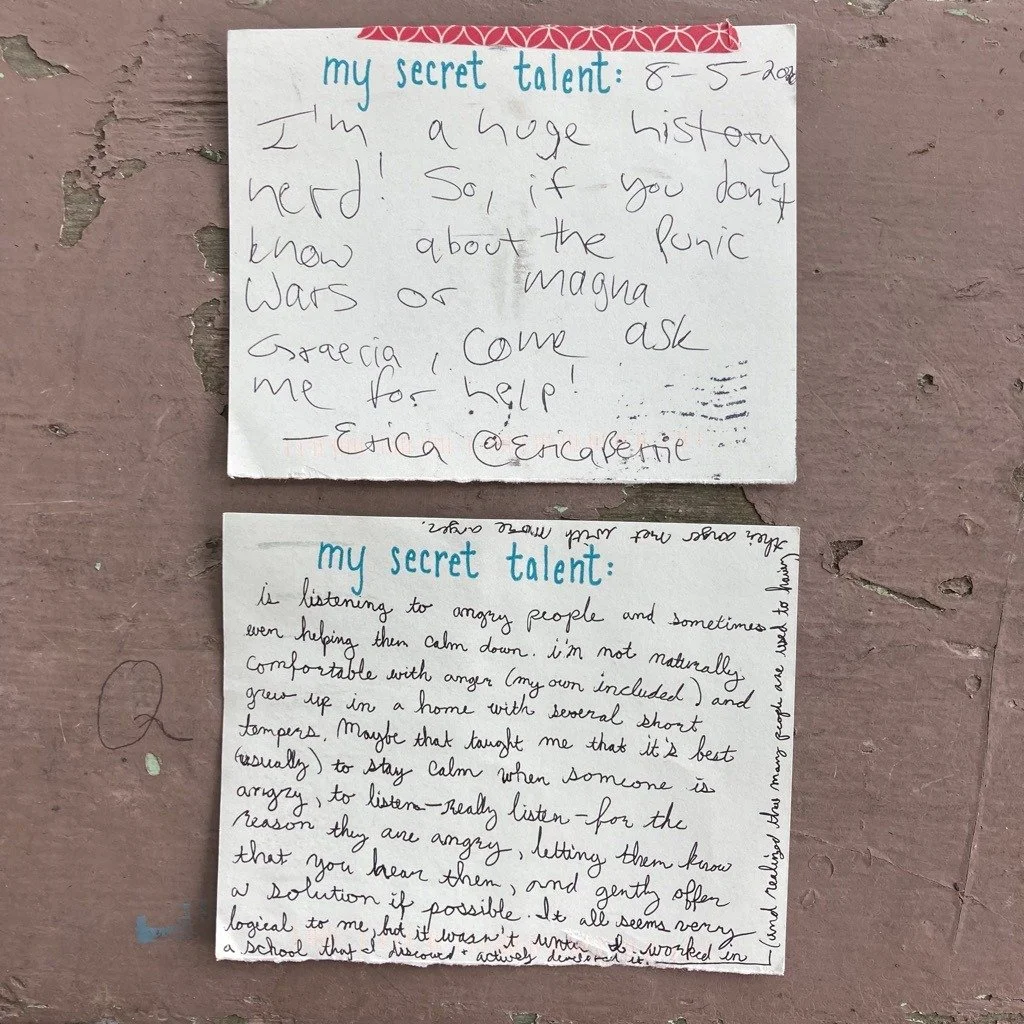 my secret talent: 8-5-20
I'm a huge history
nerd! So, if you don't
know about the Punic
Wars or magna
Graecia, come ask
me for help!
—Erica @EricaBerrie
my secret talent:
is listening to angry people and sometimes
even helping them calm down. i'm not naturally
comfortable with anger (my own included) and
grew up in a home with several short
tempers. Maybe that taught me that it's best
(usually) to stay calm when someone is
angry, to listen—really listen—for the
reason they are angry, letting them know
that you hear them, and gently offer
a solution if possible. It all seems very
logical to me, but it wasn't until I worked in
a school that I discovd + actively developed it.
(and realized this many people are used to having
their anger met with more anger.
Q